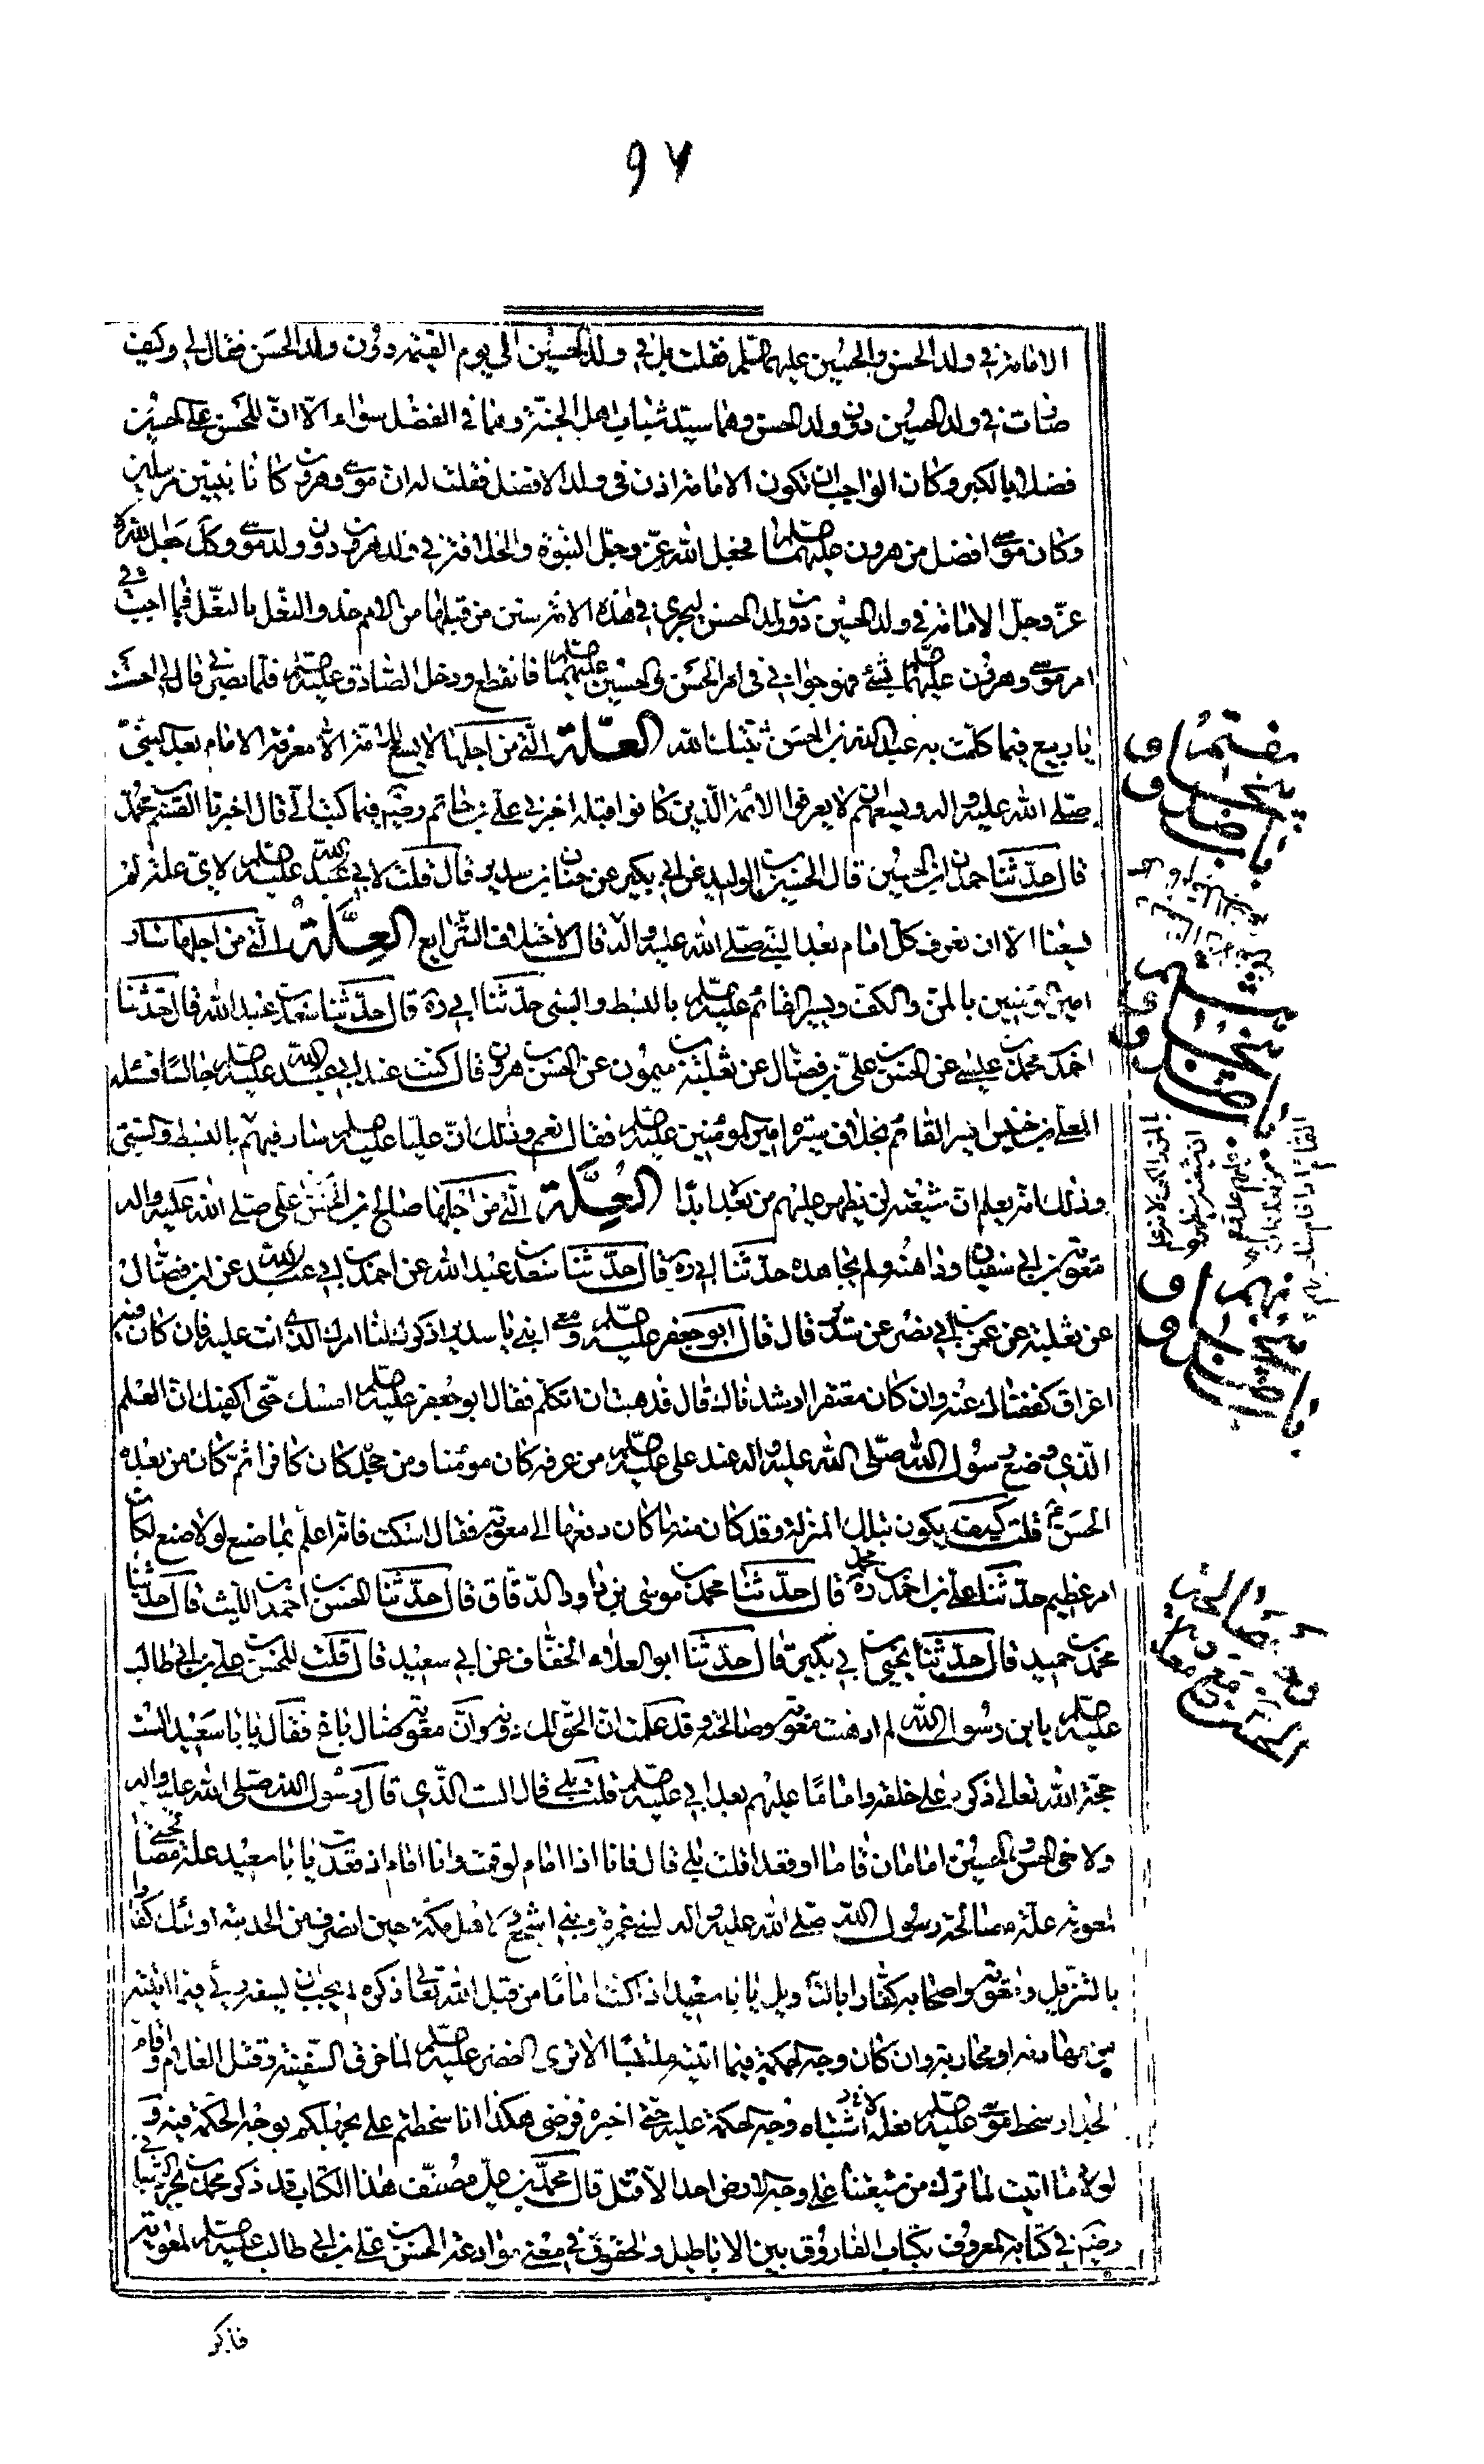 ٩٧
الامامة في ولد الحسن والحسين عليهما فقلت بل في ولد الحسين الى يوم القيمة دون ولد الحسن فقال لي وكيف
صارت في ولد الحسين دون ولد الحسن وهما سيدا شباب اهل الجنة وهما في الفضل سواء الا ان للحسن على الحسين
فضلا بالكبر وكان الواجب ان تكون الامامة اذن في ولد الافضل فقلت له ان موسى وهرون كانا نبيين مرسلين
وكان موسى افضل من هرون عليهما فجعل الله عز وجل النبوة والخلافة في ولد هرون دون ولد موسى وكك جعل الله
عز وجل الامامة في ولد الحسين دون ولد الحسن ليجري في هذه الامة سنن من قبلها من الامم حذو النعل بالنعل فما اجبت في
امر موسى وهرون عليهما بشئ فهو جوابي في امر الحسن والحسين عليهما فانقطع ودخل الصادق عليه فلما بصر بي قال لي احسنت
يا ربيع فيما كلمت به عبد الله بن الحسن ثبتك الله العلة التي من اجلها لا يسع الامة الا معرفة الامام بعد النبي
صلى الله عليه واله ويسعهم ان لا يعرفوا الائمة الذين كانوا قبله اخبرني علي بن حاتم رضي فيما كتب الي قال اخبرنا القسم بن محمد
قال حدثنا حمدان بن الحسين قال الحسين بن الوليد عن ابن بكير عن حنان بن سدير قال قلت لابي عبد الله عليه لاي علة لم
يسعنا الا ان نعرف كل امام بعد النبي صلى الله عليه واله قال لاختلاف الشرايع العلة التي من اجلها سار
امير المؤمنين بالمن والكف ويسير القائم عليه بالبسط والسبي حدثنا ابي ره قال حدثنا سعد بن عبد الله قال حدثنا
احمد بن محمد بن عيسى عن الحسن بن علي بن فضال عن ثعلبة بن ميمون عن الحسن بن هرون قال كنت عند ابي عبد الله عليه جالسا فسئله
المعلى بن خنيس ايسير القائم بخلاف سيرة امير المؤمنين عليه فقال نعم وذلك ان عليا عليه سار فيهم بالبسط والسبي
وذلك انه يعلم ان شيعته لن يظهر عليهم من بعد ابدا العلة التي من اجلها صالح الحسن بن علي صلى الله عليه واله
معوية بن ابي سفيان وداهنه ولم يجاهده حدثنا ابي ره قال حدثنا سعد بن عبد الله عن احمد بن ابي عبد الله عن ابن فضال
عن ثعلبة عن عمر بن ابي نصر عن سدير قال قال ابو جعفر عليه ومعي ابني يا سدير اذكر لنا امرك الذي انت عليه فان كان فيه
اغراق كففناك عنه وان كان مقصرا ارشدناك قال فذهبت ان اتكلم فقال ابو جعفر عليه امسك حتى اكفيك ان العلم
الذي وضع رسول الله صلى الله عليه واله عند علي عليه من عرفه كان مؤمنا ومن جحده كان كافرا ثم كان من بعده
الحسن قلت كيف يكون بتلك المنزلة وقد كان منه ما كان دفعها الى معوية فقال اسكت فانه اعلم بما صنع لولا ما صنع لكان
امر عظيم حدثنا علي بن احمد بن محمد ره قال حدثنا محمد بن موسى بن داود الدقاق قال حدثنا الحسن بن احمد بن الليث قال حدثنا
محمد بن حميد قال حدثنا يحيى بن ابي بكير قال حدثنا ابو العلاء الخفاف عن ابي سعيد قال قلت للحسن بن علي بن ابي طالب
عليه يا بن رسول الله لم داهنت معوية وصالحته وقد علمت ان الحق لك دونه وان معوية ضال باغ فقال يا با سعيد الست
حجة الله تعالى ذكره على خلقه واماما عليهم بعد ابي عليه قلت بلى قال الست الذي قال رسول الله صلى الله عليه واله
لي ولاخي الحسن والحسين امامان قاما او قعدا قلت بلى قال فانا اذا امام لو قمت وانا امام اذ قعدت يا با سعيد علة مصالحتي
لمعوية علة مصالحة رسول الله صلى الله عليه واله لبني ضمرة وبني اشجع ولاهل مكة حين انصرف من الحديبية اولئك كفار
بالتنزيل ومعوية واصحابه كفار بالتأويل يا با سعيد اذا كنت اماما من قبل الله تعالى ذكره لم يجب ان يسفه رأيي فيما اتيته
من مهادنة او محاربة وان كان وجه الحكمة فيما اتيته ملتبسا الا ترى الخضر عليه لما خرق السفينة وقتل الغلام واقام
الجدار سخط موسى عليه فعله لاشتباه وجه الحكمة عليه حتى اخبره فرضي هكذا انا سخطتم علي بجهلكم بوجه الحكمة فيه و
لولا ما اتيت لما ترك من شيعتنا على وجه الارض احد الا قتل قال محمد بن علي مصنف هذا الكتاب قد ذكر محمد بن بحر الشيباني
رضي في كتابه المعروف بكتاب الفاروق بين الاباطيل والحقوق في معنى موادعة الحسن بن علي بن ابي طالب عليه لمعوية
فذكر